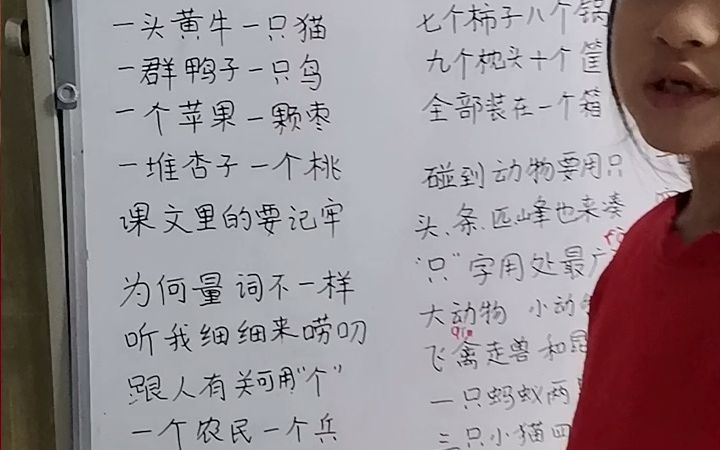 一头黄牛一只猫
一群鸭子一只鸟
一个苹果一颗枣
一堆杏子一个桃
课文里的要记牢
为何量词不一样
听我细细来唠叨
跟人有关可用"个"
一个农民一个兵
七个柿子八个锅
九个枕头十个筐
全部装在一个箱
碰到动物要用只
头、条、匹、峰也来凑
"只"字用处最广
大动物 小动物
qin
飞禽走兽和昆
一只蚂蚁两
三只小猫四